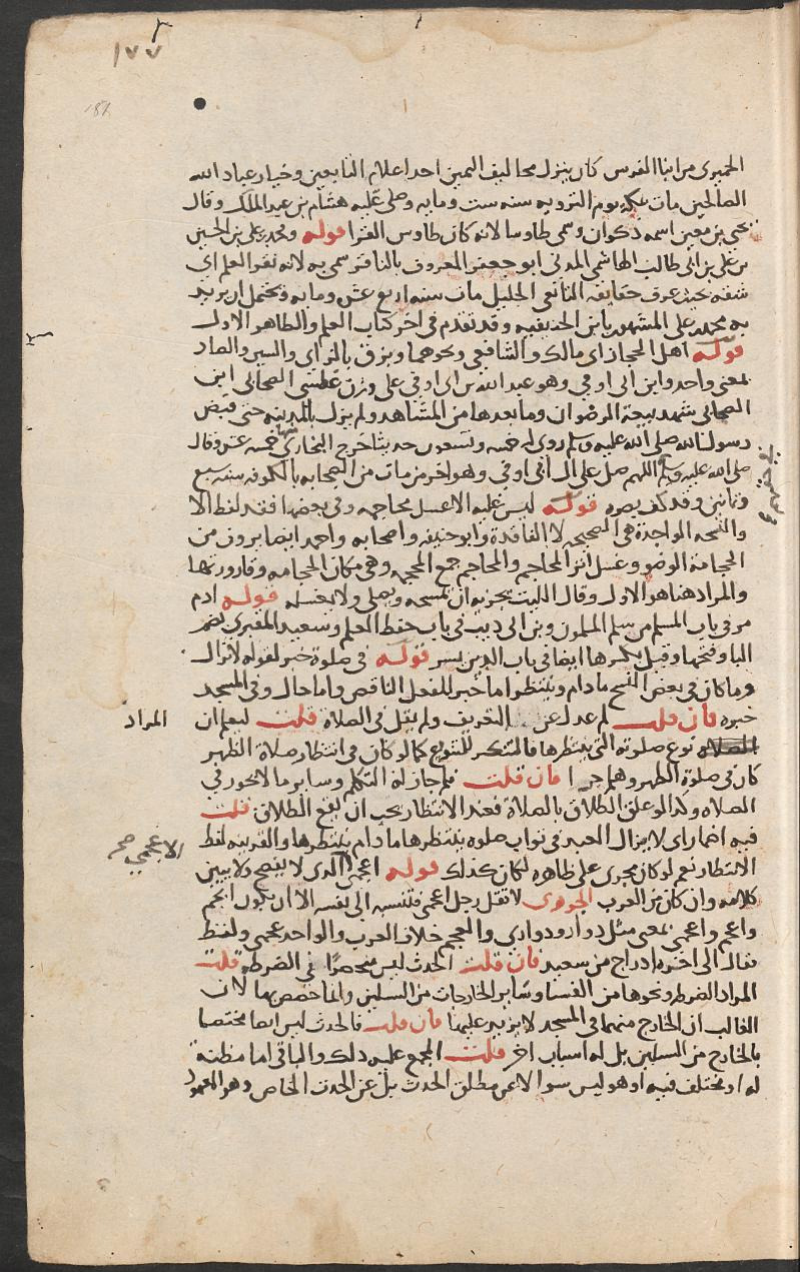 ١٧٧
الحميرى من ابنا الفرس كان ينزل مخاليف اليمن احد اعلام التابعين وخيار عباد الله
الصالحين مات بمكه يوم الترويه سنه ست ومايه وصلى عليه هشام بن عبد الملك وقال
يحيى بن معين اسمه ذكوان وسمى طاوسا لانه كان طاوس القرا قوله ومحمد بن على بن الحسين
بن على بن ابى طالب الهاشمى المدنى ابو جعفر المعروف بالباقر سمى به لانه بقر العلم اى
شقه بحيث عرف حقايقه التابعى الجليل مات سنه اربع عشر ومايه ويحتمل ان يريد
به محمد بن على المشهور بابن الحنفيه وقد تقدم فى اخر كتاب العلم والظاهر الاول
قوله اهل الحجاز اى مالك والشافعى ونحوهما وبزق بالزاى والسين والصاد
بمعنى واحد وابن ابى اوفى وهو عبد الله بن ابى اوفى على وزن الصحابى ابن
الصحابى شهد بيعة الرضوان وما بعدها من المشاهد ولم يزل بالمدينه حتى قبض
رسول الله صلى الله عليه وسلم روى له خمسه وتسعون حديثا خرج البخارى خمسه عشر وقال
صلى الله عليه وسلم اللهم صل على آل ابى اوفى وهو اخر من مات من الصحابه بالكوفه سنه سبع
وثمانين وقد كف بصره قوله ليس عليه الا غسل محاجمه وفى بعضها فقد لفظ الا
والنسخه الواجدة هى الصحيحه لا الفاقدة وابو حنيفه واصحابه واحمد ايضا يرون من
الحجامة الوضو وغسل اثر المحاجم والمحاجم جمع المحجمه وهى مكان الحجامه وقارورتها
والمراد هنا هو الاول وقال الليث يجزيه ان يمسحه ويصلى ولا يغسله قوله ادم
مر فى باب المسلم من سلم المسلمون وبن ابى ذيب فى باب حفظ العلم وسعيد المقبرى بضم
البا وفتحها وقيل بكسرها ايضا فى باب الدين يسر قوله فى صلوة خبر لقوله لا يزال
وما كان فى بعض النسخ ما دام وينتظر اما خبر للفعل الناقص واما حال وفى المسجد
خبره فان قلت لم عدل عن التعريف ولم يقل فى الصلاة قلت ليعلم ان المراد
نوع صلوته التى ينتظرها فالتنكير للتنويع كما لو كان فى انتظار صلاة الظهر
كان فى صلوة الظهر وهلم جرا فان قلت فلم جاز له التكلم وساير ما لا يجوز فى
الصلاه وكذا لو علق الطلاق بالصلاة فعند الانتظار يجب ان يقع الطلاق قلت
فيه اضمار اى لا يزال العبد فى ثواب صلوه ينتظرها ما دام ينتظرها والقرينه لفظ
الانتظار نعم لو كان مجرى على ظاهره لكان كذلك قوله اعجمى الاعجمى صح الذى لا يفصح ولا يبين
كلامه وان كان من العرب الجوهرى لا تقل رجل اعجمى فتنسبه الى نفسه الا ان يكون اعجم
واعجم واعجمى بمعنى مثل دوار ودوارى والعجم خلاف العرب والواحد عجمى ولفظ
فقال الى اخره ادراج من سعيد فان قلت الحدث ليس منحصرا فى الضرطه قلت
المراد الضرطه ونحوها من الفسا وساير الخارجات من السبيلين وانما خصص بها لان
الغالب ان الخارج منهما فى المسجد لا يزيد عليهما فان قلت فالحدث ليس ايضا مختصا
بالخارج من السبيلين بل له اسباب اخر قلت المجمع عليه ذلك والباقى اما مظنة
له او مختلف فيه او هو ليس سوالا عن مطلق الحدث بل عن الحدث الخاص وهو المعهود